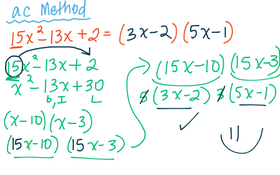 ac Method
15x² 13x + 2 = (3x - 2)(5x - 1)
15x² - 13x + 2
x² - 13x + 30
(x - 10)(x - 3)
(15x - 10)(15x - 3)
(15x - 10)(15x - 3)
(3x - 2)(5x - 1)